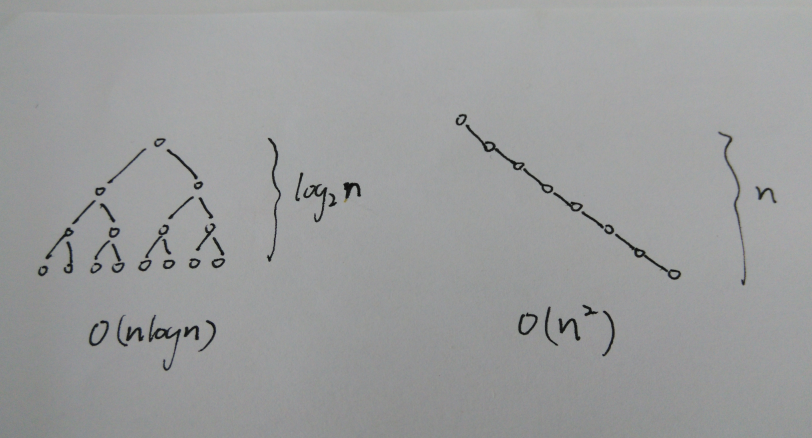 log₂n
n
O(nlogn)
O(n²)